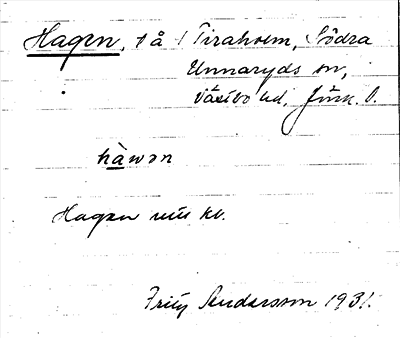 Hagen, t å / Tiraholm, Södra
Unnaryds sn,
Västbo hd, Jönk. l.
hàwən
Hagen
Fritz Andersson 1931.